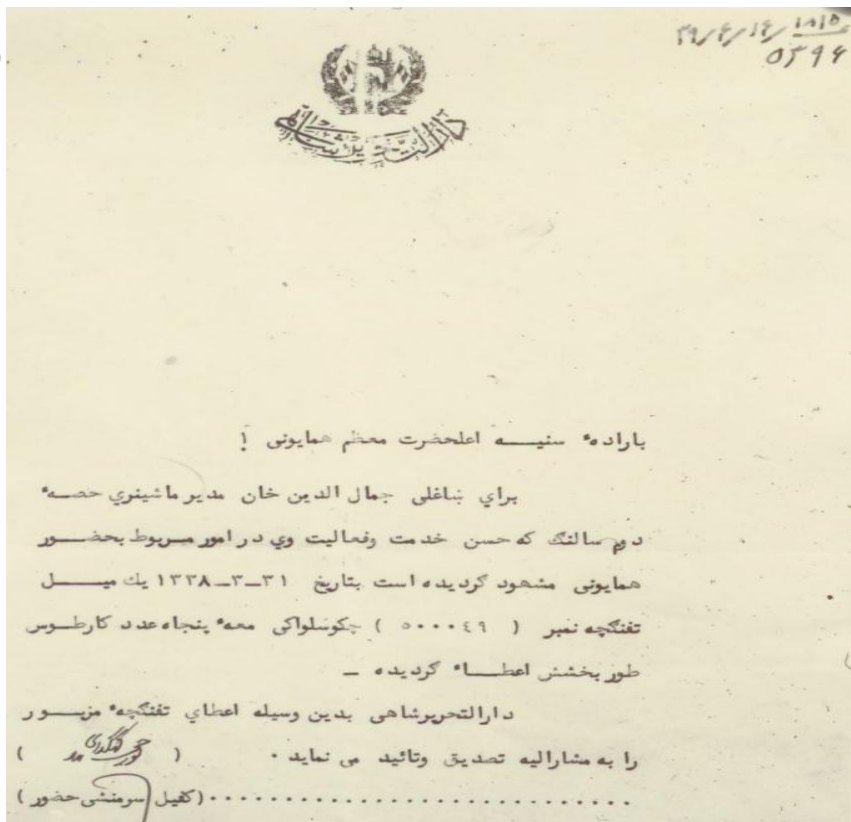 ۳۹/۶/۱۶/ ۱۸۱۵
۵۳۹۶
دارالتحریر شاهی
باراده ٔ سنیــــه اعلحضرت معظم همایونی !
برای ښاغلی جمال الدین خان مدیر ماشینري حصــه ٔ
دوم سالنگ که حسن خدمت وفعالیت وی در امور مــربوط بحضــور
همایونی مشهود گردیده است بتاریخ ۳۱ــ۳ــ۱۳۳۸ یك میـــل
تفنگچه نمبر ( ۵۰۰۰۴۹ ) چکوسلواکی معه ٔ پنجاه عدد کارطــوس
طور بخشش اعطـــاء گردیده ــ
دارالتحریرشاهی بدین وسیله اعطای تفنگچه ٔ مزبـــور
را به مشارالیه تصدیق وتائید می نماید . ( )
..............................(کفیل سرمنشی حضور )